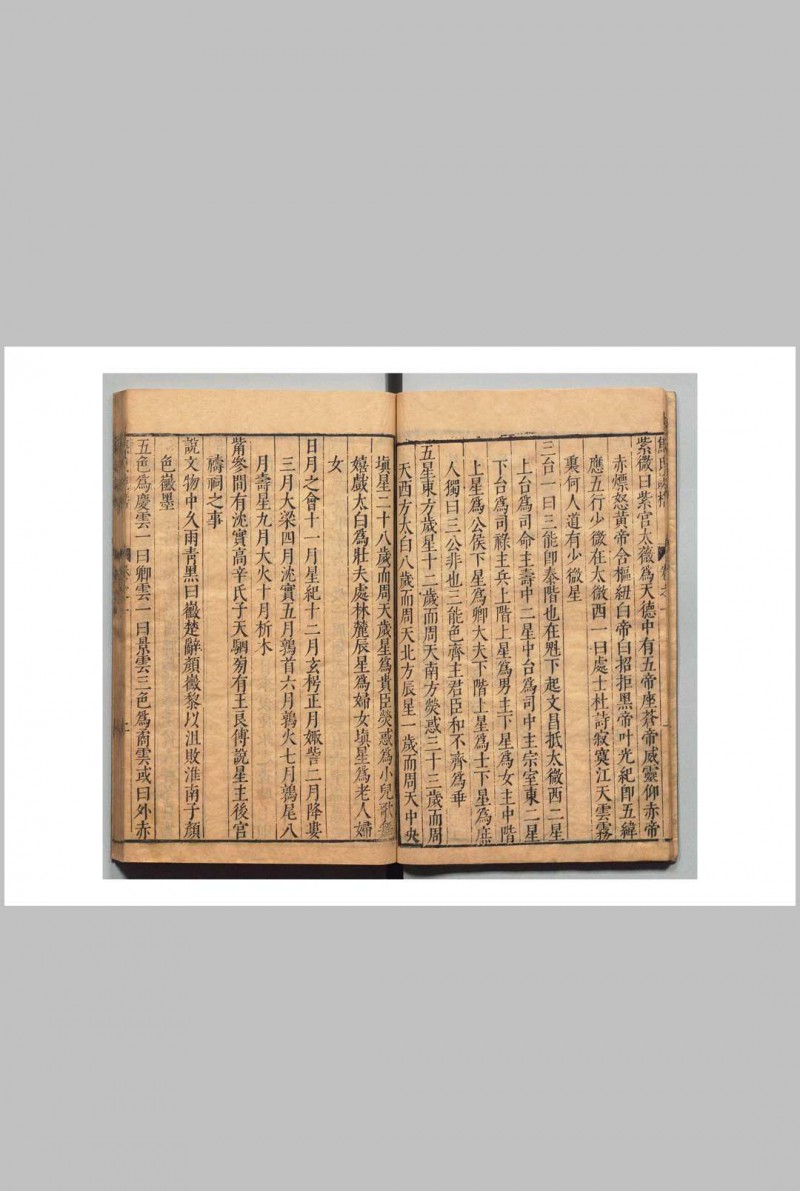 紫微曰紫宫太微為天德中有五帝座蒼帝威靈仰赤帝
赤熛怒黃帝含樞紐白帝白招拒黑帝叶光紀卽五緯
應五行少微在太微西一曰處士杜詩寂寞江天雲霧
裏何人道有少微星
三台一曰三能卽泰階也在魁下起文昌抵太微西二星
上台為司命主壽中二星中台為司中主宗室東二星
下台為司祿主兵上階上星為男主下星為女主中階
上星為公侯下星為卿大夫下階上星為士下星為庶
人獨曰三公非也三能色齊主君臣和不齊為乖
五星東方歲星十二歲而周天南方熒惑三十三歲而周
天西方太白八歲而周天北方辰星一歲而周天中央
填星二十八歲而周天歲星為貴臣熒惑為小兒歌
嬉戲太白為壯夫處林麓辰星為婦女填星為老人婦
女
日月之會十一月星紀十二月玄枵正月娵訾二月降婁
三月大梁四月沈實五月鶉首六月鶉火七月鶉尾八
月壽星九月大火十月析木
觜參間有沈實高辛氏子天駟旁有王良傅說星主後宫
禱祠之事
說文物中久雨青黑曰黴楚辭顏黴黎以沮敗淮南子顏
色黴墨
五色為慶雲一曰卿雲一曰景雲三色為矞雲或曰外赤
卷之一